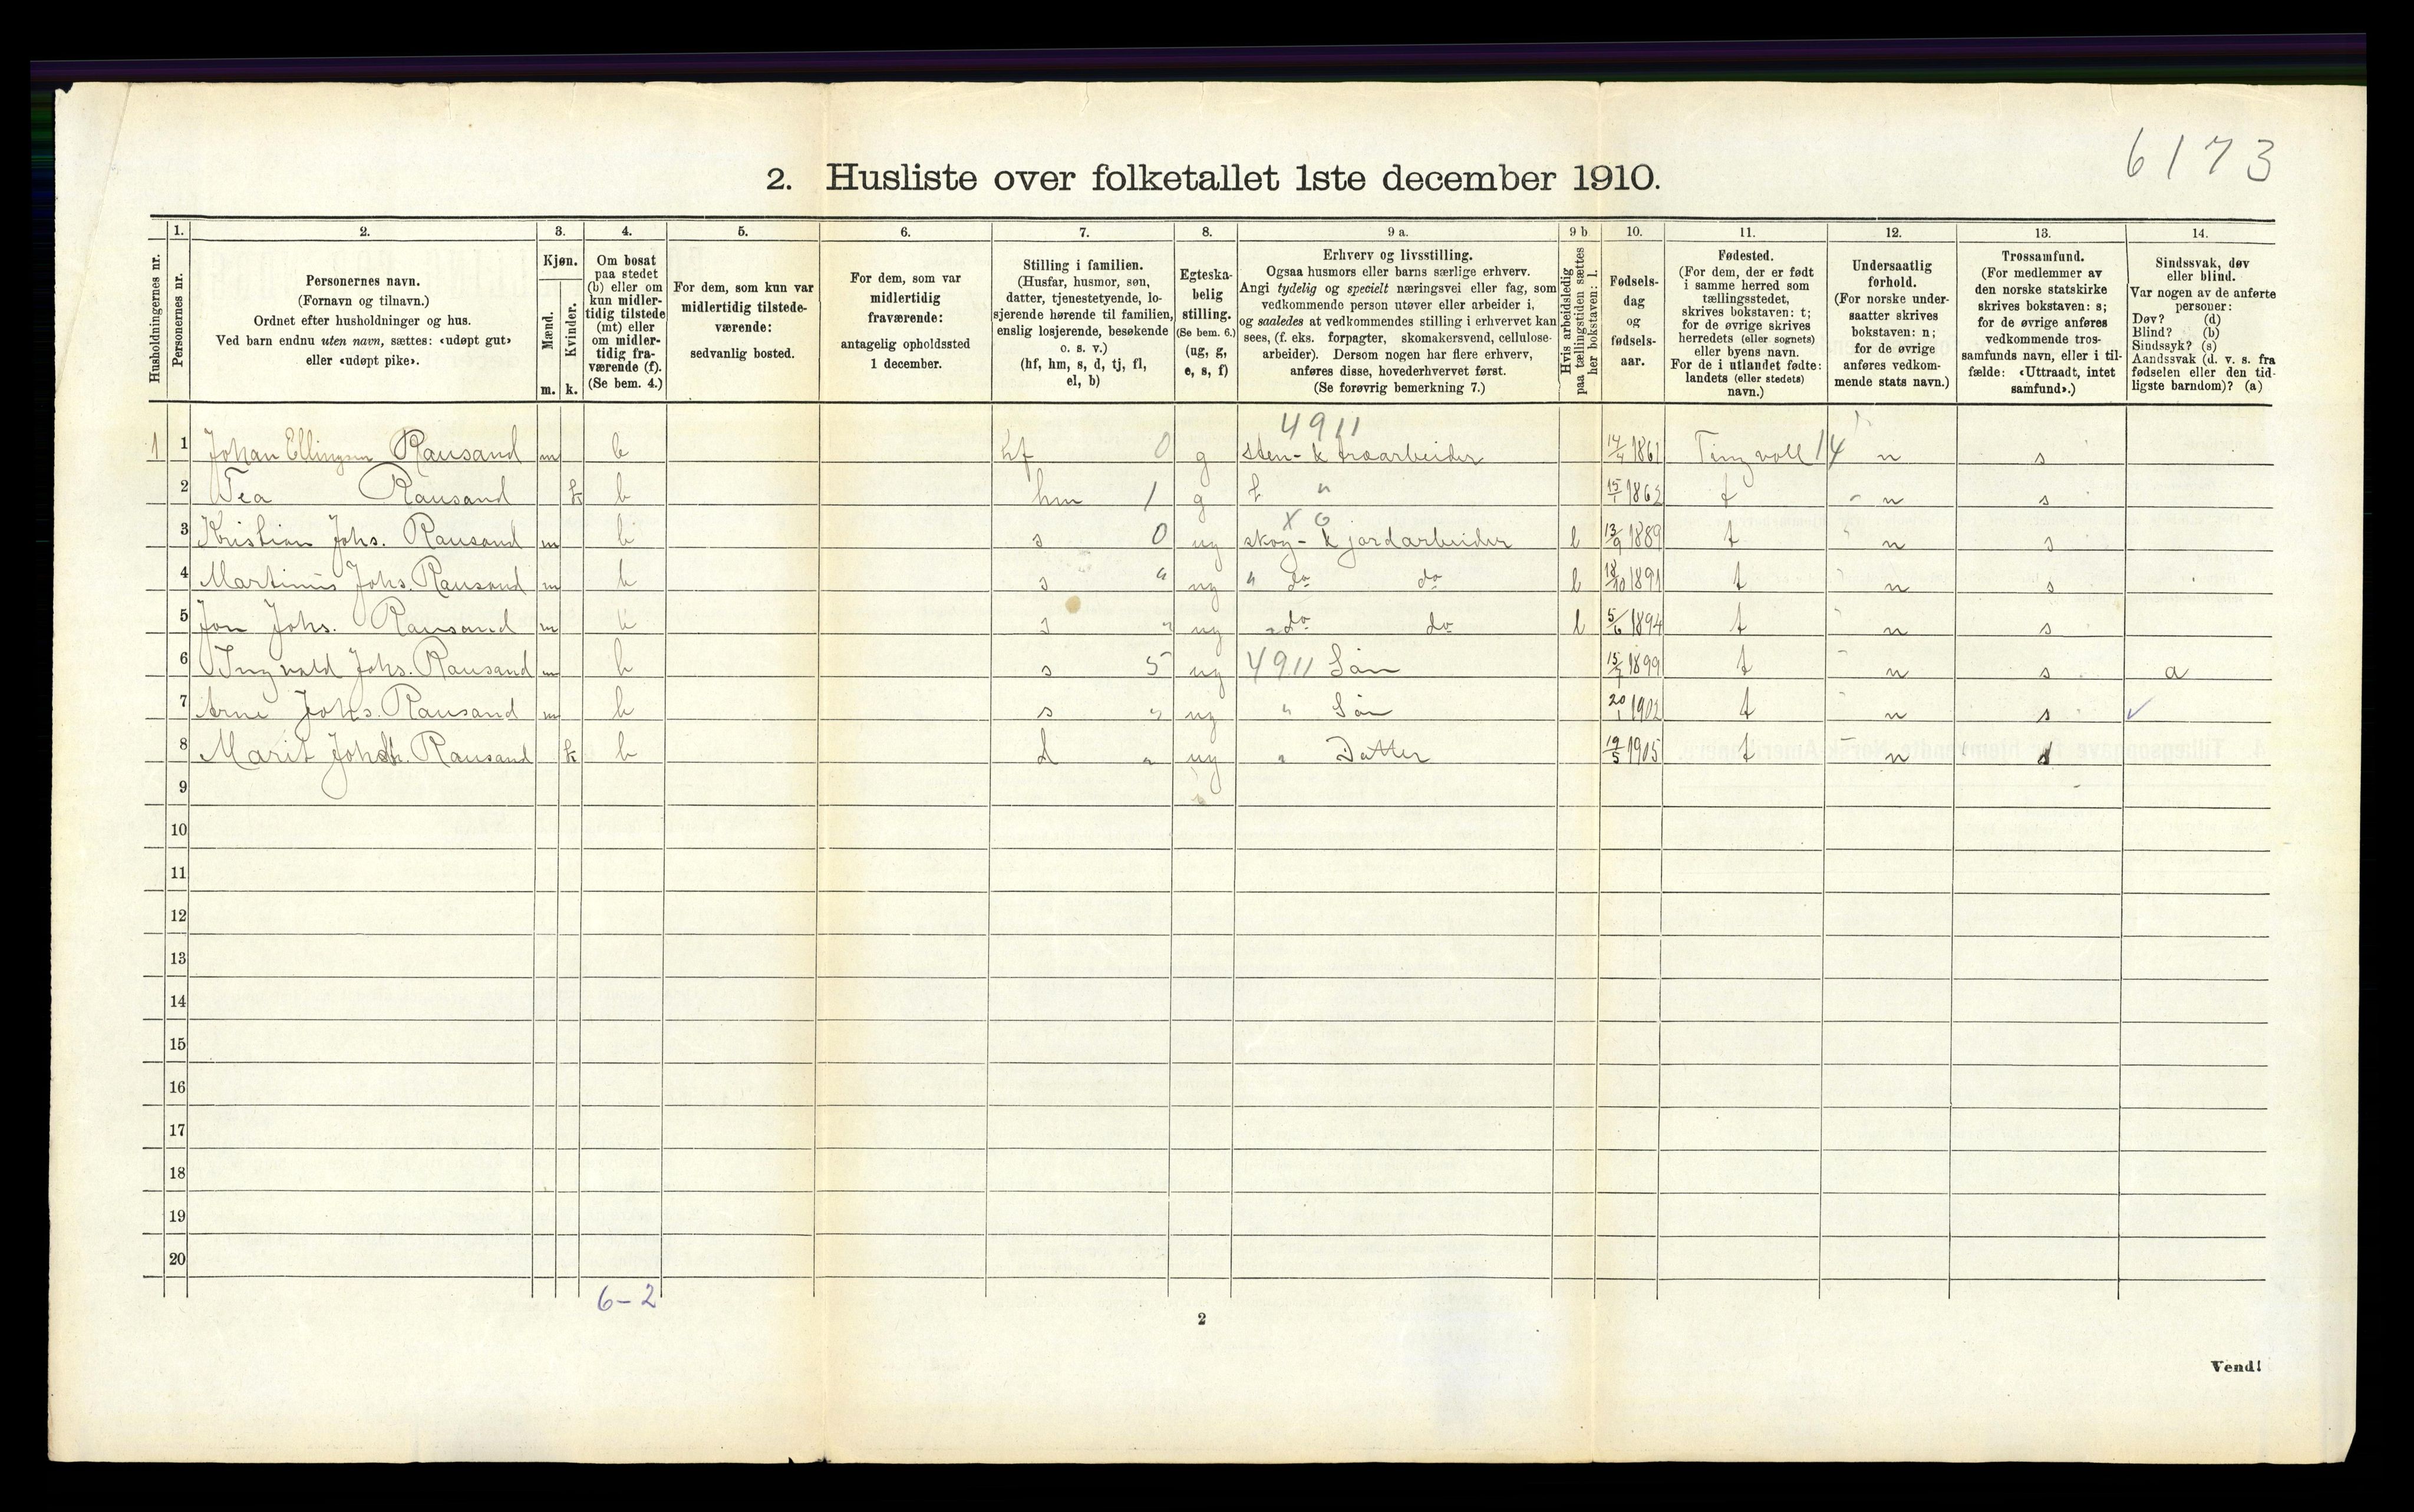 6173
2. Husliste over folketallet 1ste december 1910.
Husholdningernes nr.
1.
Personernes nr.
2.
Personernes navn.
(Fornavn og tilnavn.)
Ordnet efter husholdninger og hus.
Ved barn endnu uten navn, sættes: «udøpt gut»
eller «udøpt pike».
3.
Kjøn.
Mænd.
Kvinder.
m. k.
4.
Om bosat
paa stedet
(b) eller om
kun midler-
tidig tilstede
(mt) eller
om midler-
tidig fra-
værende (f).
(Se bem. 4.)
5.
For dem, som kun var
midlertidig tilstede-
værende:
sedvanlig bosted.
6.
For dem, som var
midlertidig
fraværende:
antagelig opholdssted
1 december.
7.
Stilling i familien.
(Husfar, husmor, søn,
datter, tjenestetyende, lo-
sjerende hørende til familien,
enslig losjerende, besøkende
o. s. v.)
(hf, hm, s, d, tj, fl,
el, b)
8.
Egteska-
belig
stilling.
(Se bem. 6.)
(ug, g,
e, s, f)
9 a.
Erhverv og livsstilling.
Ogsaa husmors eller barns særlige erhverv.
Angi tydelig og specielt næringsvei eller fag, som
vedkommende person utøver eller arbeider i,
og saaledes at vedkommendes stilling i erhvervet kan
sees, (f. eks. forpagter, skomakersvend, cellulose-
arbeider). Dersom nogen har flere erhverv,
anføres disse, hovederhvervet først.
(Se forøvrig bemerkning 7.)
9 b
Hvis arbeidsledig
paa tællingstiden sættes
her bokstaven: l.
10.
Fødsels-
dag
og
fødsels-
aar.
11.
Fødested.
(For dem, der er født
i samme herred som
tællingsstedet,
skrives bokstaven: t;
for de øvrige skrives
herredets (eller sognets)
eller byens navn.
For de i utlandet fødte:
landets (eller stedets)
navn.)
12.
Undersaatlig
forhold.
(For norske under-
saatter skrives
bokstaven: n;
for de øvrige
anføres vedkom-
mende stats navn.)
13.
Trossamfund.
(For medlemmer av
den norske statskirke
skrives bokstaven: s;
for de øvrige anføres
vedkommende tros-
samfunds navn, eller i til-
fælde: «Uttraadt, intet
samfund».)
14.
Sindssvak, døv
eller blind.
Var nogen av de anførte
personer:
Døv? (d)
Blind? (b)
Sindssyk? (s)
Aandssvak (d. v. s. fra
fødselen eller den tid-
ligste barndom)? (a)
4911
1 1 Johan Ellingsen Rausand m b hf 0 g sten- & træarbeider 14/4 1861 Tingvoll 14 n s
2 Tea Rausand k b hm 1 g " 15/1 1862 t n s
X 0
3 Kristian Johs. Rausand m b s 0 ug skog- & jordarbeider l 13/9 1889 t n s
4 Martinus Johs. Rausand m b s " ug " do do l 18/10 1891 t n s
5 Jon Johs. Rausand m b s " ug " do do l 5/6 1894 t n s
6 Ingvald Johs. Rausand m b s 5 ug 4911 Søn 15/7 1899 t n s a
7 Arne Johs. Rausand m b s " ug " Søn 20/1 1902 t n s
8 Marit Johsdt. Rausand k b d " ug " Datter 19/5 1905 t n s
9
10
11
12
13
14
15
16
17
18
19
20
6-2
2
Vend!